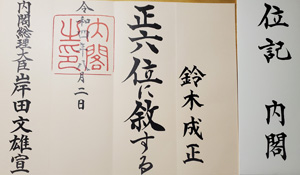 位記 内閣
鈴木成正
正六位に敘する
令和四年八月二日
内閣之印
内閣総理大臣岸田文雄宣